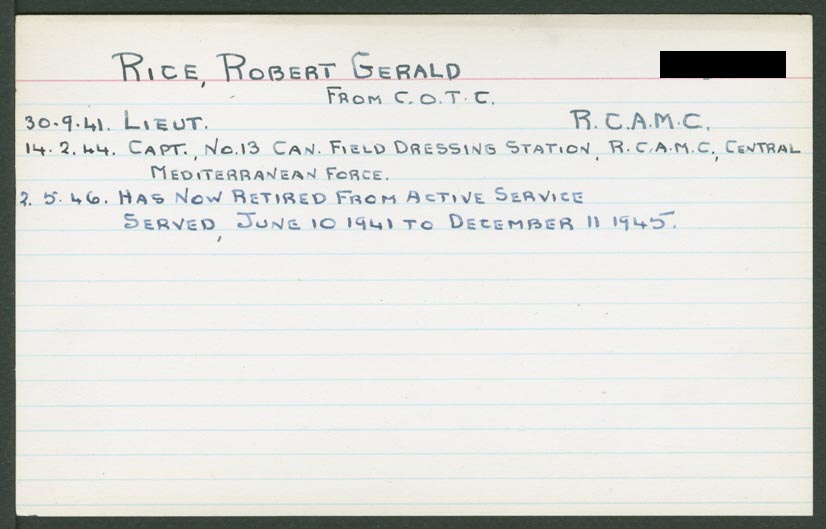 RICE, ROBERT GERALD
FROM C.O.T.C.
30.9.41. LIEUT. R.C.A.M.C.
14.2.44. CAPT., NO.13 CAN. FIELD DRESSING STATION, R.C.A.M.C, CENTRAL
MEDITERRANEAN FORCE.
2.5.46. HAS NOW RETIRED FROM ACTIVE SERVICE
SERVED, JUNE 10 1941 TO DECEMBER 11 1945.